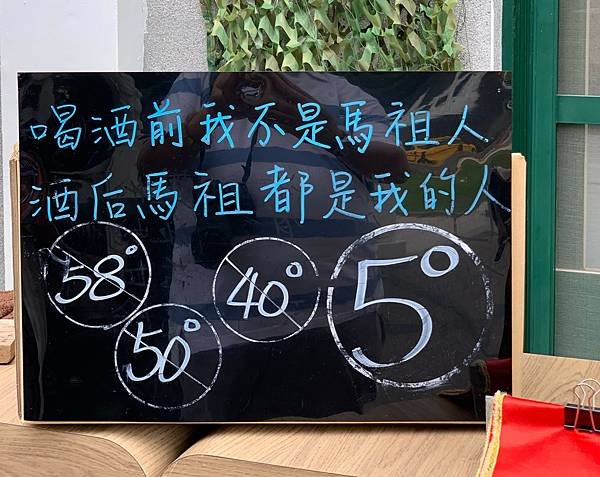 喝酒前我不是馬祖人
酒后馬祖都是我的人
58°
50°
40°
5°